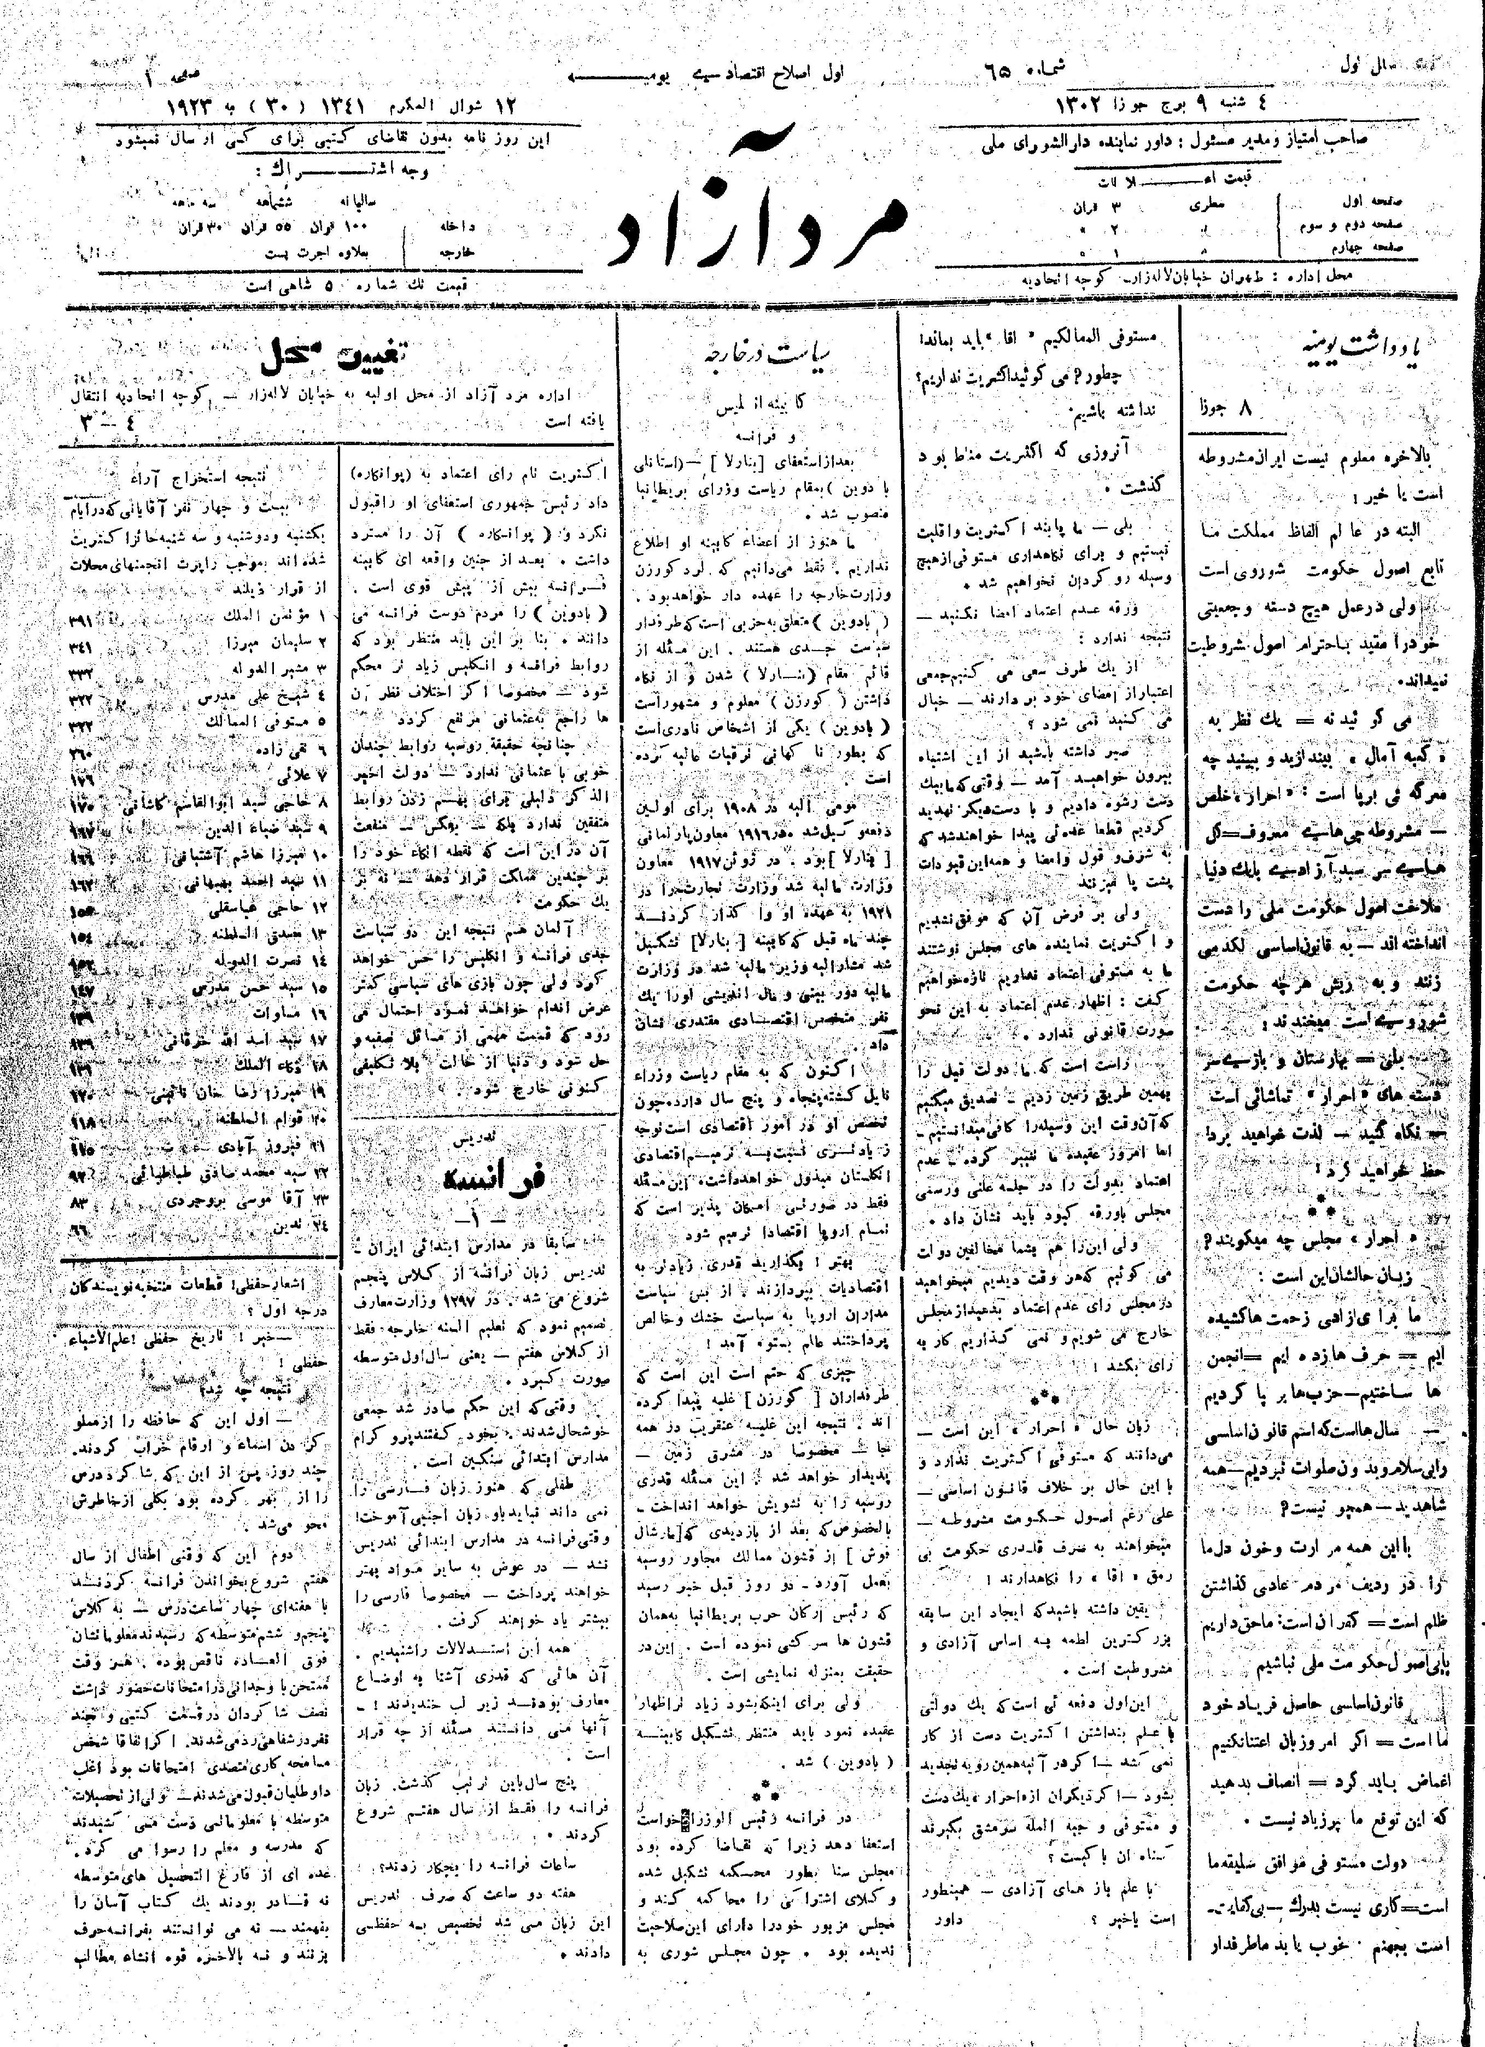 سال اول
شماره ۶۵
اول اصلاح اقتصادسے یومیـــــه
صفحه ۱
٤ شنبه ۹ برج جوزا ۱۳۰۲
۱۲ شوال المکرم ۱۳٤۱ (۳۰) مه ۱۹۲۳
صاحب امتیاز و مدیر مسئول : داور نماینده دارالشورای ملی
قیمت اعـــلانات
صفحه اول سطری ۳ قران
صفحه دوم و سوم » ۲ »
صفحه چهارم » ۱ »
محل اداره : طهران خیابان لاله‌زار کوچه اتحادیه
مرد آزاد
این روز نامه بدون تقاضای کتبی برای کسی ارسال نمیشود
وجه اشتـــراك :
سالیانه ششماهه سه ماهه
داخله ۱۰۰ قران ۵۵ قران ۳۰ قران
خارجه بعلاوه اجرت پست
قیمت تك شماره ۵ شاهی است
یادداشت یومیه
۸ جوزا
بالاخره معلوم نیست ایران مشروطه
است یا خیر !
البته در عالم الفاظ مملکت مــا
تابع اصول حکومت شوروی است
ولی درعمل هیچ دسته و جمعیتی
خودرا مقید باحترام اصول مشروطیت
نمیداند.
می گوئید نه = یك نظر به
« کعبه آمال » بیندازید و ببینید چه
معرکه ئی برپا است : «احرار» خلص
— مشروطه چی هاسے معروف — گل
هاسے سر سبد آزادسے یایك دنیا
ملاخت اصول حکومت ملی را دست
انداخته اند — به قانون اساسی لگد می
زنند و به ریش هرچه حکومت
شوروسے است میخندند :
بلی = بهارستان و بازسے سر
دسته های «احرار» تماشائی است
— نگاه کنید — لذت خواهید برد!
حظ خواهید کرد !
***
« احرار » مجلس چه میگویند؟
زبان حالشان این است :
ما برای آزادی زحمت ها کشیده
ایم = حرف ها زده ایم = انجمن
ها ساختیم — حزب ها بر پا کردیم
— سال ها است که اسم قانون اساسی
را بی سلام و بدون صلوات نبردیم — همه
شاهدید — همچو نیست؟
با این همه مرارت و خون دل ما
را در ردیف مردم عادی گذاشتن
ظلم است = کفران است: ما حق داریم
پاپی اصول حکومت ملی نباشیم
قانون اساسی حاصل فریاد خود
ما است = اگر امروز بآن اعتنا نکنیم
اغماض باید کرد = انصاف بدهید
که این توقع ما پر زیاد نیست .
دولت مستوفی موافق سلیقه ما
است = کاری نیست بدرك — بی کفایت
است بجهنم . خوب یا بد ما طرفدار
مستوفی الممالکیم «اقا» باید بماند!
چطور؟ می گوئید اکثریت نداریم؟
نداشته باشیم.
آنروزی که اکثریت مناط بود
گذشت .
بلی — ما پابند اکثریت و اقلیت
نیستیم و برای نگاهداری مستوفی از هیچ
وسیله رو گردان نخواهیم شد .
ورقه عدم اعتماد امضا نکنید —
نتیجه ندارد :
از یك طرف سعی می کنیم جمعی
اعتبار از امضای خود بر دارند — خیال
می کنید نمی شود ؟
صبر داشته باشید از این اشتباه
بیرون خواهید آمد — وقتی که ما بیك
دست رشوه دادیم و با دست دیگر تهدید
کردیم قطعا عده ئی پیدا خواهند شد که
به شرف و قول و امضا و همه این قیودات
پشت پا میزنند
ولی بر فرض آن که موفق نشدیم
و اکثریت نماینده های مجلس نوشتند
ما به مستوفی اعتماد نداریم تازه خواهیم
گفت : اظهار عدم اعتماد به این نحو
صورت قانونی ندارد .
راست است که ما دولت قبل را
بهمین طریق زمین زدیم — تصدیق میکنیم
که آن وقت این وسیله را کافی میدانستیم —
اما امروز عقیده ما تغییر کرده — عدم
اعتماد بدولت را در جلسه علنی و رسمی
مجلس باورقه کبود باید نشان داد .
ولی این را هم بشما مخالفین دولت
می گوئیم که هر وقت دیدیم میخواهید
در مجلس رای عدم اعتماد بدهید از مجلس
خارج می شویم و نمی گذاریم کار به
رای بکشد !
***
زبان حال « احرار » این است —
می‌دانند که مستوفی اکثریت ندارد و
با این حال بر خلاف قانون اساسی —
علی رغم اصول حکومت مشروطه —
میخواهند به صرف قلدری حکومت بی
رمق « اقا » را نگاهدارند !
یقین داشته باشید که ایجاد این سابقه
بزرگترین لطمه به اساس آزادی و
مشروطیت است .
این اول دفعه ئی است که یك دولتی
با علم بنداشتن اکثریت دست از کار
نمی کشد — اگر در آتیه همین رویه تجدید
بشود — اگر دیگران از «احرار» یك دست
و مستوفی و جبه المله سرمشق بگیرند
گناه آن با کیست ؟
با علم باز های آزادی — همینطور
است یا خیر ؟ داور
سیاست در خارجه
کابینه انگلیس
و فرانسه
بعداز استعفای [بنارلا] — (استانلی
بادوین) بمقام ریاست وزرای بریطانیا
منصوب شد .
ما هنوز از اعضاء کابینه او اطلاع
نداریم . فقط می‌دانیم که لرد کورزن
وزارت خارجه را عهده دار خواهد بود .
(بادوین) متعلق به حزبی است که طرفدار
سیاست جدی هستند . این مسئله از
قائم مقام (بنارلا) شدن و از نگاه
داشتن (کورزن) معلوم و مشهور است
(بادوین) یکی از اشخاص نادری است
که بطور نا گهانی ترقیات عالیه کرده
است .
مومی الیه در ۱۹۰۸ برای اولین
دفعه وکیل شد در ۱۹۱۶ معاون پارلمانی
[بنارلا] بود . در ژوئن ۱۹۱۷ معاون
وزارت مالیه شد وزارت تجارت را در
۱۹۲۱ به عهده او وا گذار کردنــد
چند ماه قبل که کابینه [بنارلا] تشکیل
شد مشارالیه وزیر مالیه شد در وزارت
مالیه دور بینی و مال اندیشی اورا یك
نفر متخصص اقتصادی مقتدری نشان
داد .
اکنون که به مقام ریاست وزراء
نایل گشته پنجاه و پنج سال دارد چون
تخصص او در امور اقتصادی است توجه
زیادتری نسبت به ترمیم اقتصادی
انگلستان مبذول خواهد داشت. این مسئله
فقط در صورتی امکان پذیر است که
تمام اروپا اقتصادا ترمیم شود
بهتر ! بگذارید قدری زیادتر به
اقتصادیات بپردازند . از بس سیاست
مداران اروپا به سیاست خشك و خالص
پرداختند عالم بستوه آمد !
چیزی که حتم است این است که
طرفداران [کورزن] غلبه پیدا کرده
اند . نتیجه این غلبه عنقریب در همه
جا — مخصوصا در مشرق زمین —
پدیدار خواهد شد . این مسئله قدری
روسیه را به تشویش خواهد انداخت —
بالخصوص که بعد از بازدیدی که [مارشال
فوش] از قشون ممالك مجاور روسیه
بعمل آورد — دو روز قبل خبر رسید
که رئیس ارکان حرب بریطانیا به همان
قشون ها سر کشی نموده است . این در
حقیقت بمنزله نمایشی است .
ولی برای اینکه بشود زیاد تر اظهار
عقیده نمود باید منتظر تشکیل کابینــه
(بادوین) شد .
***
در فرانسه رئیس الوزرا خواست
استعفا دهد زیرا که تقاضا کرده بود
مجلس سنا بطور محکمه تشکیل شده
وکلای اشتراکی را محاکمه کند و
مجلس مزبور خودرا دارای این صلاحیت
ندیده بود . چون مجلس شوری به
تغییر محل
اداره مرد آزاد از محل اولیه به خیابان لاله‌زار — کوچه اتحادیه انتقال
یافته است ٤ — ۳
اکثریت تام رای اعتماد به (پوانکاره)
داد رئیس جمهوری استعفای او را قبول
نکرد و (پوانکاره) آن را مسترد
داشت . بعد از چنین واقعه ای کابینه
فرانسه بیش از پیش قوی است .
(بادوین) را مردم دوست فرانسه می
دانند . بنا بر این باید منتظر بود که
روابط فرانسه و انگلیس زیاد تر محکم
شود — مخصوصا اگر اختلاف نظر آن
ها راجع به عثمانی مرتفع گردد
چنانچه حقیقة روسیه روابط چندان
خوبی با عثمانی ندارد — دولت اخیر
الذکر دلیلی برای بهم زدن روابط
متفقین ندارد بلکه — بعکس — منفعت
آن در این است که نقطه اتکاء خود را
بر چندین مملکت قرار دهد — نه بر
یك حکومت .
آلمان هم نتیجه این دو سیاست
جدی فرانسه و انگلیس را حس خواهد
کرد ولی چون بازی های سیاسی کمتر
عرض اندام خواهند نمود احتمال می
رود که قسمت مهمی از مسائل تصفیه و
حل شود و دنیا از حالت بلا تکلیفی
کنونی خارج شود .
تدریس
فرانسه
— ۱ —
سابقا در مدارس ابتدائی ایران —
تدریس زبان فرانسه از کلاس پنجم
شروع می شد . در ۱۲۹۷ وزارت معارف
تصمیم نمود که تعلیم السنه خارجه فقط
از کلاس هفتم — یعنی سال اول متوسطه
صورت گیرد .
وقتی که این حکم صادر شد جمعی
خوشحال شدند . بخود گفتند پرو گرام
مدارس ابتدائی سنگین است .
طفلی که هنوز زبان فــارسی را
نمی داند نباید باو زبان اجنبی آموخت !
وقتی فرانسه در مدارس ابتدائی تدریس
نشد — در عوض به سایر مواد بهتر
خواهند پرداخت — مخصوصا فارسی را
بیشتر یاد خواهند گرفت .
همه این استــدلالات را شنیدیم .
آن هائی که قدری آشنا به اوضاع
معارف بودنــد زیر لب خندیدند ! —
آنها می دانستند مسئله از چه قرار
است .
پنج سال باین ترتیب گذشت . زبان
فرانسه را فقط از سال هفتم شروع
کردند .
ساعات فرانسه را چکار زدند؟
هفته دو ساعت که صرف تدریس
این زبان می شد تخصیص بــه حفظــی
دادند .
نتیجه استخراج آراء
بیست و چهار نفر آقایانی که در ایام
یکشنبه و دوشنبه و سه شنبه حائز اکثریت
شده اند بموجب راپرت انجمنهای محلات
از قرار ذیلند
۱ مؤتمن الملك ۳۹۱
۲ سلیمان میرزا ۳٤۱
۳ مشیر الدوله ۳۳۲
٤ شیخ علی مدرس ۳۲۲
۵ مستوفی الممالك ۳۲۲
۶ تقی زاده ۲۶۰
۷ علائی ۱۷۶
۸ حاجی سید ابوالقاسم کاشانی ۱۷۰
۹ سید ضیاء الدین ۱۶۷
۱۰ میرزا هاشم آشتیانی ۱۶۶
۱۱ سید احمد بهبهانی ۱۶۲
۱۲ حاجی عباسقلی
۱۳ مصدق السلطنه ۱۵٤
۱٤ نصرت الدوله
۱۵ سید حسن مدرس ۱٤۷
۱۶ مساوات
۱۷ سید اسد الله خرقانی
۱۸ ذکاء الملك
۱۹ میرزا رضا خان نائینی
۲۰ قوام السلطنه ۱۱۸
۲۱ فیروز آبادی
۲۲ سید محمد صادق طباطبائی ۹۲
۲۳ آقا موسی بروجردی ۸۳
۲٤ تدین ۶۶
اشعار حفظی ! قطعات منتخبه نویسندگان
درجه اول ؟
— خیر ! تاریخ حفظی ! علم الأشیاء
حفظی !
نتیجه چه شد؟
— اول این که حافظه را از مملو
کردن اسماء و ارقام خراب کردند .
چند روز پس از این که شاگرد درس
را از بهر کرده بود بکلی از خاطرش
محو می‌شد .
دوم این که وقتی اطفال از سال
هفتم شروع بخواندن فرانسه کردنــد
با هفته‌ای چهار ساعت درس — به کلاس
پنجم و ششم متوسطه که رسیدند معلوماتشان
فوق العــاده ناقص بود . هــر وقت
ممتحن با وجدانی در امتحانات حضور داشت
نصف شاگردان در قسمت کتبی و چند
نفر در شفاهی رد می شدند . اگر اتفاقا شخص
مسامحه کاری متصدی امتحانات بود اغلب
داوطلبان قبول می شدند — ولی از تحصیلات
متوسطه با معلوماتی دست می کشیدند
که مدرسه و معلم را رسوا می کرد .
عده ای از فارغ التحصیل های متوسطه
نه قــادر بودند یك کتاب آسان را
بفهمند — نه می توانستند بفرانسه حرف
بزنند و نــه بالأخره قوه انشاء مطالب